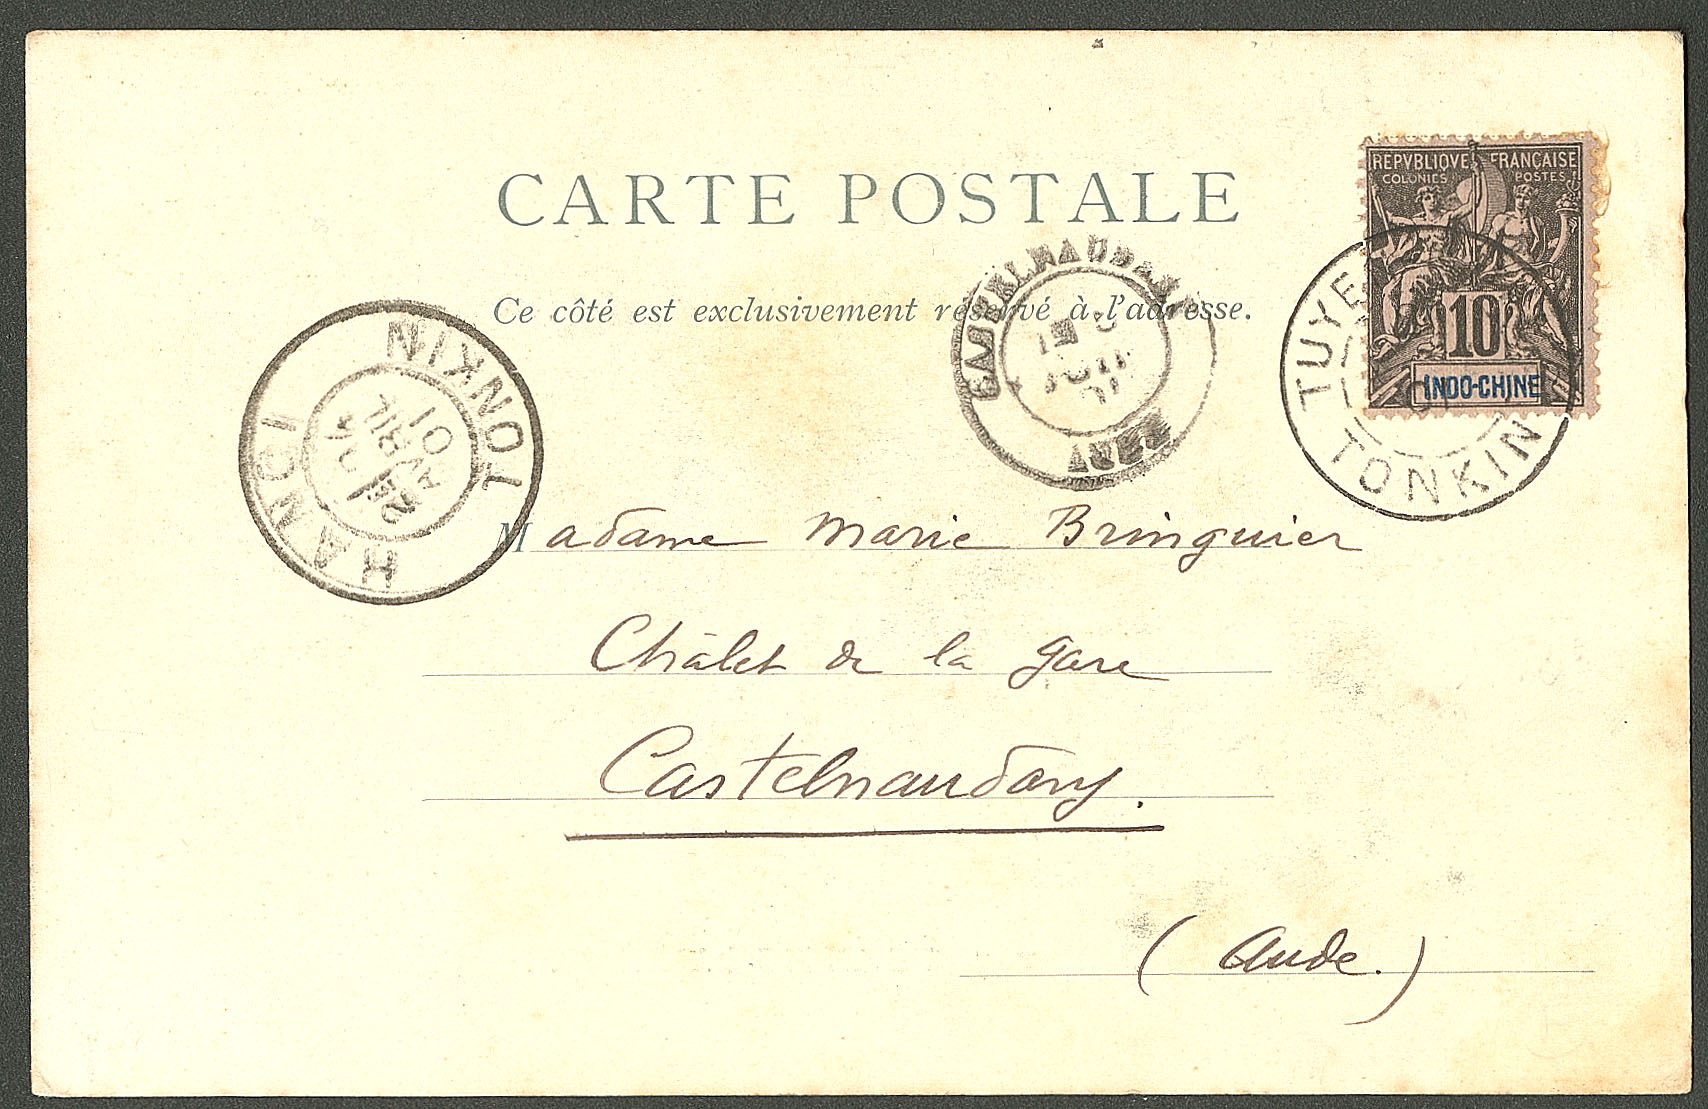 CARTE POSTALE
Ce côté est exclusivement réservé à l'adresse.
REPVBLIQVE FRANÇAISE
COLONIES POSTES
10
INDO-CHINE
TUYE
TONKIN
HANOI
TONKIN
AVRIL
01
CASTELNAUDARY
AUDE
Madame Marie Bringuier
Châlet de la gare
Castelnaudary.
(Aude.)